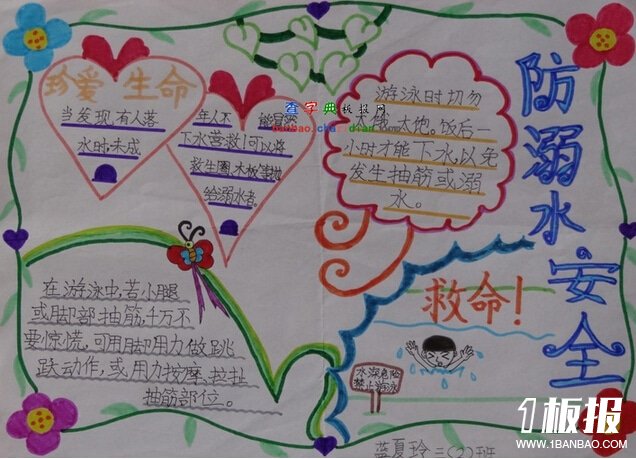 防溺水安全
珍爱生命
当发现有人落
水时,未成
年人不能冒然
下水营救!可以将
救生圈、木板等抛
给溺水者。
游泳时切勿
太饿、太饱。饭后一
小时才能下水,以免
发生抽筋或溺
水。
查字典板报网
banbao.chazidian.com
在游泳中,若小腿
或脚部抽筋,千万不
要惊慌,可用脚用力做跳
跃动作,或用力按摩、拉扯
抽筋部位。
救命!
水深危险
禁止游泳
蓝夏玲 三(2)班
1板报
WWW.1BANBAO.COM